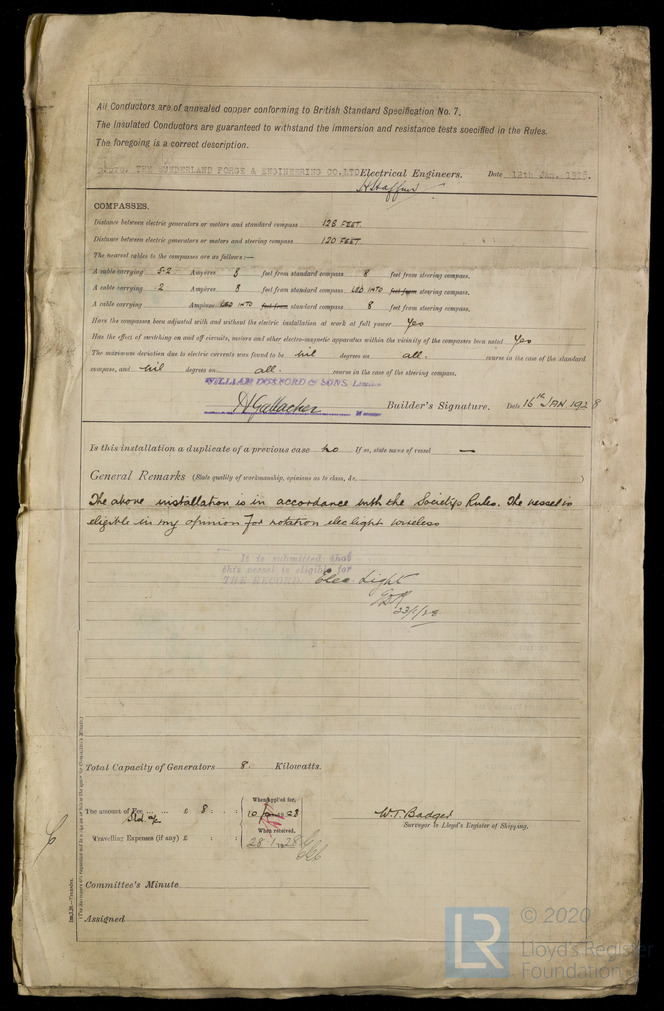 All Conductors are of annealed copper conforming to British Standard Specification No. 7.
The Insulated Conductors are guaranteed to withstand the immersion and resistance tests specified in the Rules.
The foregoing is a correct description.
THE SUNDERLAND FORGE & ENGINEERING CO. LTD Electrical Engineers. Date 12th Jan. 1928.
COMPASSES.
Distance between electric generators or motors and standard compass 128 FEET.
Distance between electric generators or motors and steering compass 120 FEET.
The nearest cables to the compasses are as follows:—
A cable carrying 5.2 Ampères 8 feet from standard compass 8 feet from steering compass.
A cable carrying .2 Ampères 8 feet from standard compass LED INTO feet from steering compass.
A cable carrying Ampères LED INTO feet from standard compass 8 feet from steering compass.
Have the compasses been adjusted with and without the electric installation at work at full power Yes
Has the effect of switching on and off circuits, motors and other electro-magnetic apparatus within the vicinity of the compasses been noted Yes
The maximum deviation due to electric currents was found to be nil degrees on all. course in the case of the standard
compass, and nil degrees on all. course in the case of the steering compass.
WILLIAM DOXFORD & SONS, Limited
H Gallacher Builder's Signature. Date 16th JAN. 1928
Is this installation a duplicate of a previous case no If so, state name of vessel —
General Remarks (State quality of workmanship, opinions as to class, &c. )
The above installation is in accordance with the Society's Rules. The vessel is
eligible in my opinion for notation elec light wireless
It is submitted that
this vessel is eligible for
THE RECORD. Elec. Light
23/1/28
Total Capacity of Generators 8. Kilowatts.
The amount of Fee ... ... £ 8 : :
When applied for,
10 Jan 1928
Travelling Expenses (if any) £ : :
When received,
28.1.1928
W.T. Badger
Surveyor to Lloyd's Register of Shipping.
Committee's Minute
Assigned
© 2020
LR
Lloyd's Register
Foundation